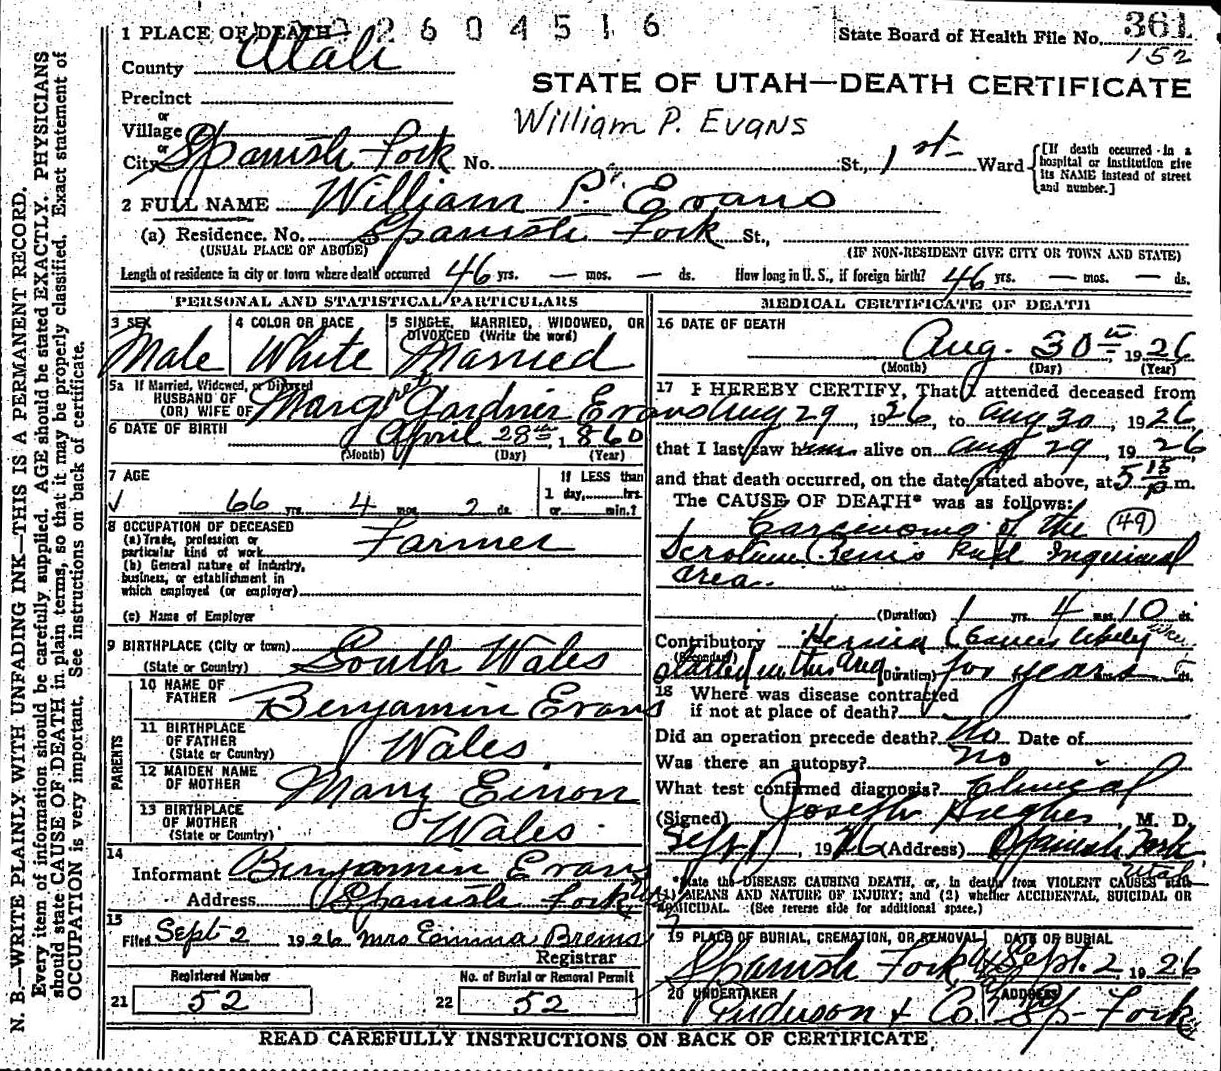 2604516
State Board of Health File No. 361
152
1 PLACE OF DEATH
County Utah
STATE OF UTAH—DEATH CERTIFICATE
Precinct
or
Village
William P. Evans
or
City Spanish Fork No. St., 1st Ward
[If death occurred in a hospital or institution give its NAME instead of street and number.]
2 FULL NAME William P. Evans
(a) Residence. No. Spanish Fork St.,
(USUAL PLACE OF ABODE) (IF NON-RESIDENT GIVE CITY OR TOWN AND STATE)
Length of residence in city or town where death occurred 46 yrs. — mos. — ds. How long in U. S., if foreign birth? 46 yrs. — mos. — ds.
PERSONAL AND STATISTICAL PARTICULARS
3 SEX 4 COLOR OR RACE 5 SINGLE, MARRIED, WIDOWED, OR
DIVORCED (Write the word)
Male White Married
5a If Married, Widowed, or Divorced
HUSBAND OF
(OR) WIFE OF Margret Gardner Evans
6 DATE OF BIRTH April 28th 1860
(Month) (Day) (Year)
7 AGE If LESS than
1 day, hrs.
66 yrs. 4 mos. 2 ds. or min.?
8 OCCUPATION OF DECEASED
(a) Trade, profession or
particular kind of work Farmer
(b) General nature of industry,
business, or establishment in
which employed (or employer)
(c) Name of Employer
9 BIRTHPLACE (City or town)
(State or Country) South Wales
PARENTS
10 NAME OF
FATHER Benjamin Evans
11 BIRTHPLACE
OF FATHER
(State or Country) Wales
12 MAIDEN NAME
OF MOTHER Mary Einon
13 BIRTHPLACE
OF MOTHER
(State or Country) Wales
14
Informant Benjamin Evans
Address Spanish Fork
15
Filed Sept 2 1926 Mrs Emma Brems
Registrar
Registered Number No. of Burial or Removal Permit
21 52 22 52
MEDICAL CERTIFICATE OF DEATH
16 DATE OF DEATH
Aug. 30th 1926
(Month) (Day) (Year)
17 I HEREBY CERTIFY, That I attended deceased from
Aug 29, 1926, to Aug 30, 1926,
that I last saw him alive on Aug 29, 1926
and that death occurred, on the date stated above, at 5 15 p m.
The CAUSE OF DEATH* was as follows:
Carcinoma of the (49)
Scrotum Penis and Inguinal
area.
(Duration) 1 yrs. 4 mos. 10 ds.
Contributory Hernia (Cancer likely
(Secondary) started in this (Duration) for years ds.
18 Where was disease contracted
if not at place of death?
Did an operation precede death? No Date of
Was there an autopsy? No
What test confirmed diagnosis? Clinical
(Signed) Joseph Hughes, M. D.
Sept 1, 1926 (Address) Spanish Fork
Utah
*State the DISEASE CAUSING DEATH, or, in deaths from VIOLENT CAUSES state
(1) MEANS AND NATURE OF INJURY; and (2) whether ACCIDENTAL, SUICIDAL OR
HOMICIDAL. (See reverse side for additional space.)
19 PLACE OF BURIAL, CREMATION, OR REMOVAL DATE OF BURIAL
Spanish Fork Sept. 2 1926
20 UNDERTAKER ADDRESS
Anderson & Co. Sp- Fork
READ CAREFULLY INSTRUCTIONS ON BACK OF CERTIFICATE
N. B.—WRITE PLAINLY WITH UNFADING INK—THIS IS A PERMANENT RECORD.
Every item of information should be carefully supplied. AGE should be stated EXACTLY. PHYSICIANS
should state CAUSE OF DEATH in plain terms, so that it may be properly classified. Exact statement of
OCCUPATION is very important. See instructions on back of certificate.